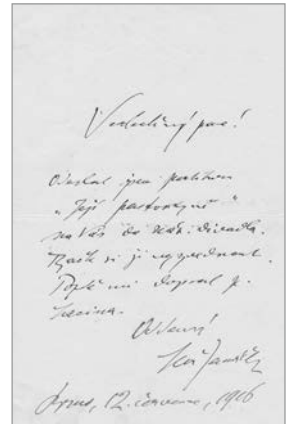 Velectěný pane!
Odeslal jsem partituru
„Její pastorkyně“
na Vás do
Račte si ji vyzvednout.
mi dopsal p.
Oddaný
Leoš Janáček
Brno, 12. července, 1916